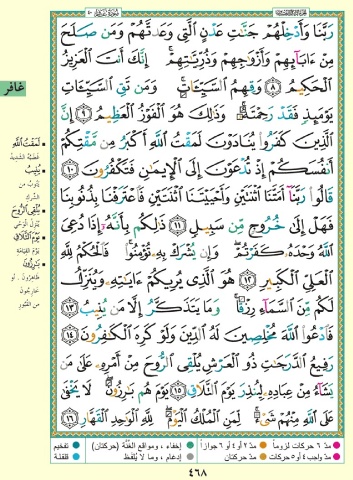 سورة غافر ٤٠
رَبَّنَا وَأَدْخِلْهُمْ جَنَّٰتِ عَدْنٍ ٱلَّتِى وَعَدتَّهُمْ وَمَن صَلَحَ
مِنْ ءَابَآئِهِمْ وَأَزْوَٰجِهِمْ وَذُرِّيَّٰتِهِمْ ۚ إِنَّكَ أَنتَ ٱلْعَزِيزُ
ٱلْحَكِيمُ ٨ وَقِهِمُ ٱلسَّيِّـَٔاتِ ۚ وَمَن تَقِ ٱلسَّيِّـَٔاتِ
يَوْمَئِذٍ فَقَدْ رَحِمْتَهُۥ ۚ وَذَٰلِكَ هُوَ ٱلْفَوْزُ ٱلْعَظِيمُ ٩ إِنَّ
ٱلَّذِينَ كَفَرُوا۟ يُنَادَوْنَ لَمَقْتُ ٱللَّهِ أَكْبَرُ مِن مَّقْتِكُمْ
أَنفُسَكُمْ إِذْ تُدْعَوْنَ إِلَى ٱلْإِيمَٰنِ فَتَكْفُرُونَ ١٠
قَالُوا۟ رَبَّنَآ أَمَتَّنَا ٱثْنَتَيْنِ وَأَحْيَيْتَنَا ٱثْنَتَيْنِ فَٱعْتَرَفْنَا بِذُنُوبِنَا
فَهَلْ إِلَىٰ خُرُوجٍ مِّن سَبِيلٍ ١١ ذَٰلِكُم بِأَنَّهُۥٓ إِذَا دُعِىَ
ٱللَّهُ وَحْدَهُۥ كَفَرْتُمْ ۖ وَإِن يُشْرَكْ بِهِۦ تُؤْمِنُوا۟ ۚ فَٱلْحُكْمُ لِلَّهِ
ٱلْعَلِىِّ ٱلْكَبِيرِ ١٢ هُوَ ٱلَّذِى يُرِيكُمْ ءَايَٰتِهِۦ وَيُنَزِّلُ
لَكُم مِّنَ ٱلسَّمَآءِ رِزْقًا ۚ وَمَا يَتَذَكَّرُ إِلَّا مَن يُنِيبُ ١٣
فَٱدْعُوا۟ ٱللَّهَ مُخْلِصِينَ لَهُ ٱلدِّينَ وَلَوْ كَرِهَ ٱلْكَٰفِرُونَ ١٤
رَفِيعُ ٱلدَّرَجَٰتِ ذُو ٱلْعَرْشِ يُلْقِى ٱلرُّوحَ مِنْ أَمْرِهِۦ عَلَىٰ مَن
يَشَآءُ مِنْ عِبَادِهِۦ لِيُنذِرَ يَوْمَ ٱلتَّلَاقِ ١٥ يَوْمَ هُم بَٰرِزُونَ ۖ لَا يَخْفَىٰ
عَلَى ٱللَّهِ مِنْهُمْ شَىْءٌ ۚ لِّمَنِ ٱلْمُلْكُ ٱلْيَوْمَ ۖ لِلَّهِ ٱلْوَٰحِدِ ٱلْقَهَّارِ ١٦
غافر
لَمَقْتُ الله
يُنِيبُ
يُلْقِى الرُّوحَ
يُنَزِّلُ الوَحْيَ
يَوْمَ التَّلَاقِ
يَوْمَ القِيَامَةِ
بَارِزُونَ
مدّ ٦ حركات لزوماً مدّ ٢ أو ٤ أو ٦ جوازاً إخفاء، ومواقع الغُنَّة (حركتان) تفخيم
مدّ واجب ٤ أو ٥ حركات مدّ حركتان إدغام، وما لا يُلفَظ قلقلة
٤٦٨